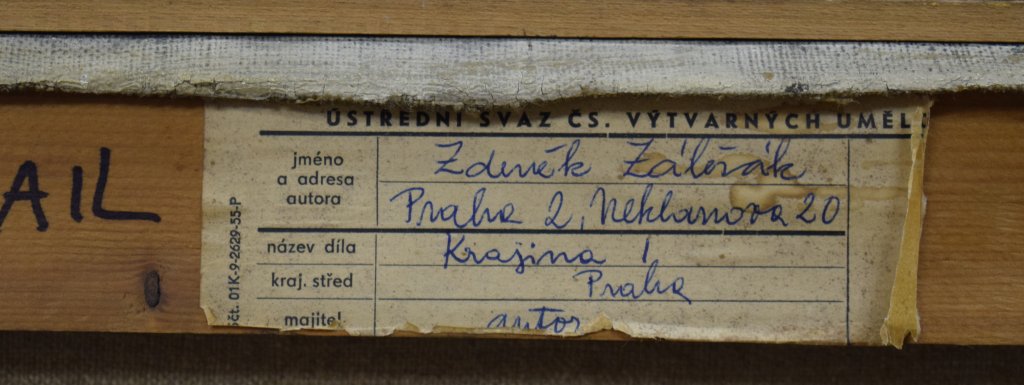 ÚSTŘEDNÍ SVAZ ČS. VÝTVARNÝCH UMĚL
AIL
jméno
a adresa
autora
Zdeněk
Praha 2, Neklanova 20
název díla
Krajina 1
kraj. střed
Praha
majitel
autor
01K-9-2629-55-P